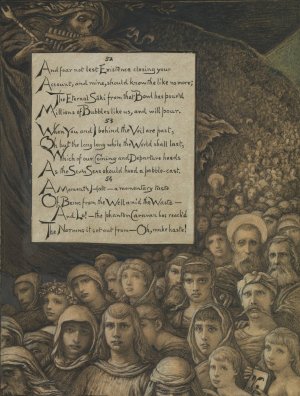 52
And fear not lest Existence closing your
Account, and mine, should know the like no more;
The Eternal Sáki from that Bowl has pour'd
Millions of Bubbles like us, and will pour.
53
When You and I behind the Veil are past,
Oh but the long long while the World shall last,
Which of our Coming and Departure heeds
As the Sev'n Seas should heed a pebble-cast.
54
A Moment's Halt—a momentary taste
Of Being from the Well amid the Waste—
And Lo!—the phantom Caravan has reach'd
The Nothing it set out from—Oh, make haste!